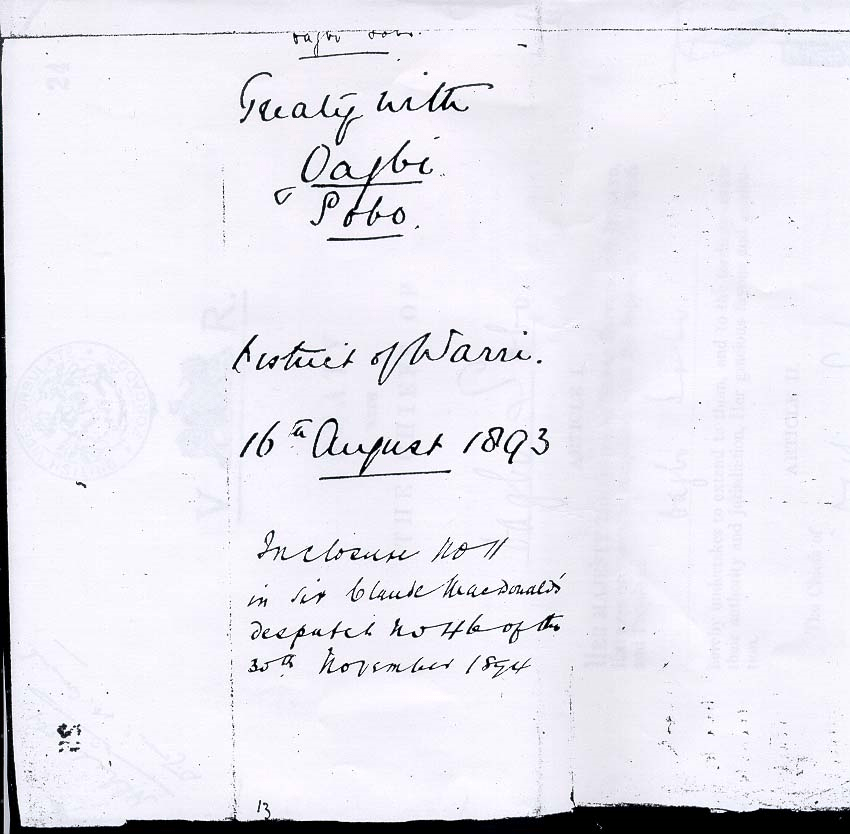 Treaty with
Oagbi
Sobo.
District of Warri.
16th August 1893
Inclosure No 11
in Sir Claude MacDonald's
despatch No 46 of the
30th November 1894
13